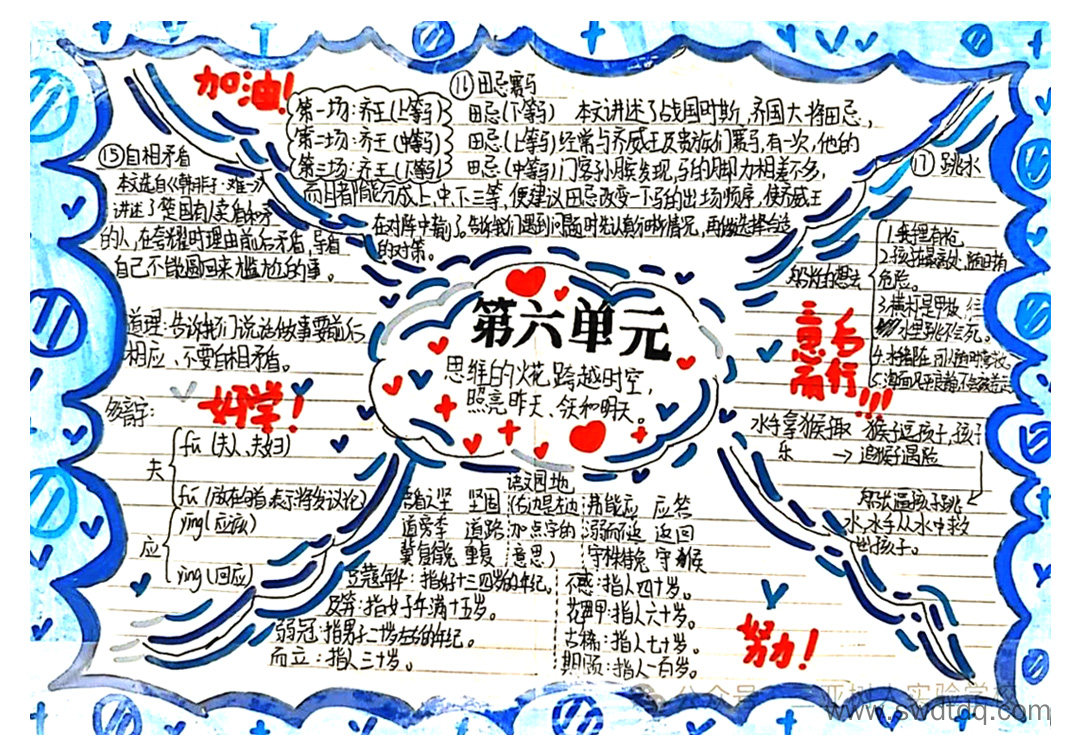 加油!
⑯田忌赛马
第一场:齐王(上等马) 田忌(下等马)
第二场:齐王(中等马) 田忌(上等马)
第三场:齐王(下等马) 田忌(中等马)
本文讲述了战国时期,齐国大将田忌,
经常与齐威王及贵族们赛马,有一次,他的
门客孙膑发现,马的脚力相差不多,
而且都能分成上、中、下三等,便建议田忌改变一下马的出场顺序,使齐威王
在对阵中输了。告诉我们遇到问题时先认真分析情况,再做选择合适
的对策。
⑮自相矛盾
本文选自《韩非子·难一》
讲述了楚国有人卖盾和矛
的人,在夸耀时理由前后矛盾,导致
自己不能圆回来尴尬的事。
道理:告诉我们说话做事要前后
相应、不要自相矛盾。
好学!
多音字:
夫
fū(夫人、夫妇)
fú(放在句首,表示将发议论)
应
yīng(应该)
yìng(回应)
第六单元
思维的火花,跨越时空,
照亮昨天、今天和明天。
⑰跳水
船长的想法
2.孩子在最高处,随时有
危险。
意多
而行!!!
水手拿猴子取 猴子逗孩子,孩子
乐 → 追猴子遇险
水,水手从水中救
出孩子。
语文园地
坚固
道旁李 道路
重复
加点字的
意思
弗能应 应答
溺而返 返回
守株待兔 守候
豆蔻年华:指女子十三四岁的年纪。
及笄:指女子年满十五岁。
弱冠:指男子二十岁左右的年纪。
而立:指人三十岁。
不惑:指人四十岁。
花甲:指人六十岁。
古稀:指人七十岁。
期颐:指人一百岁。
努力!
www.swdtdq.com